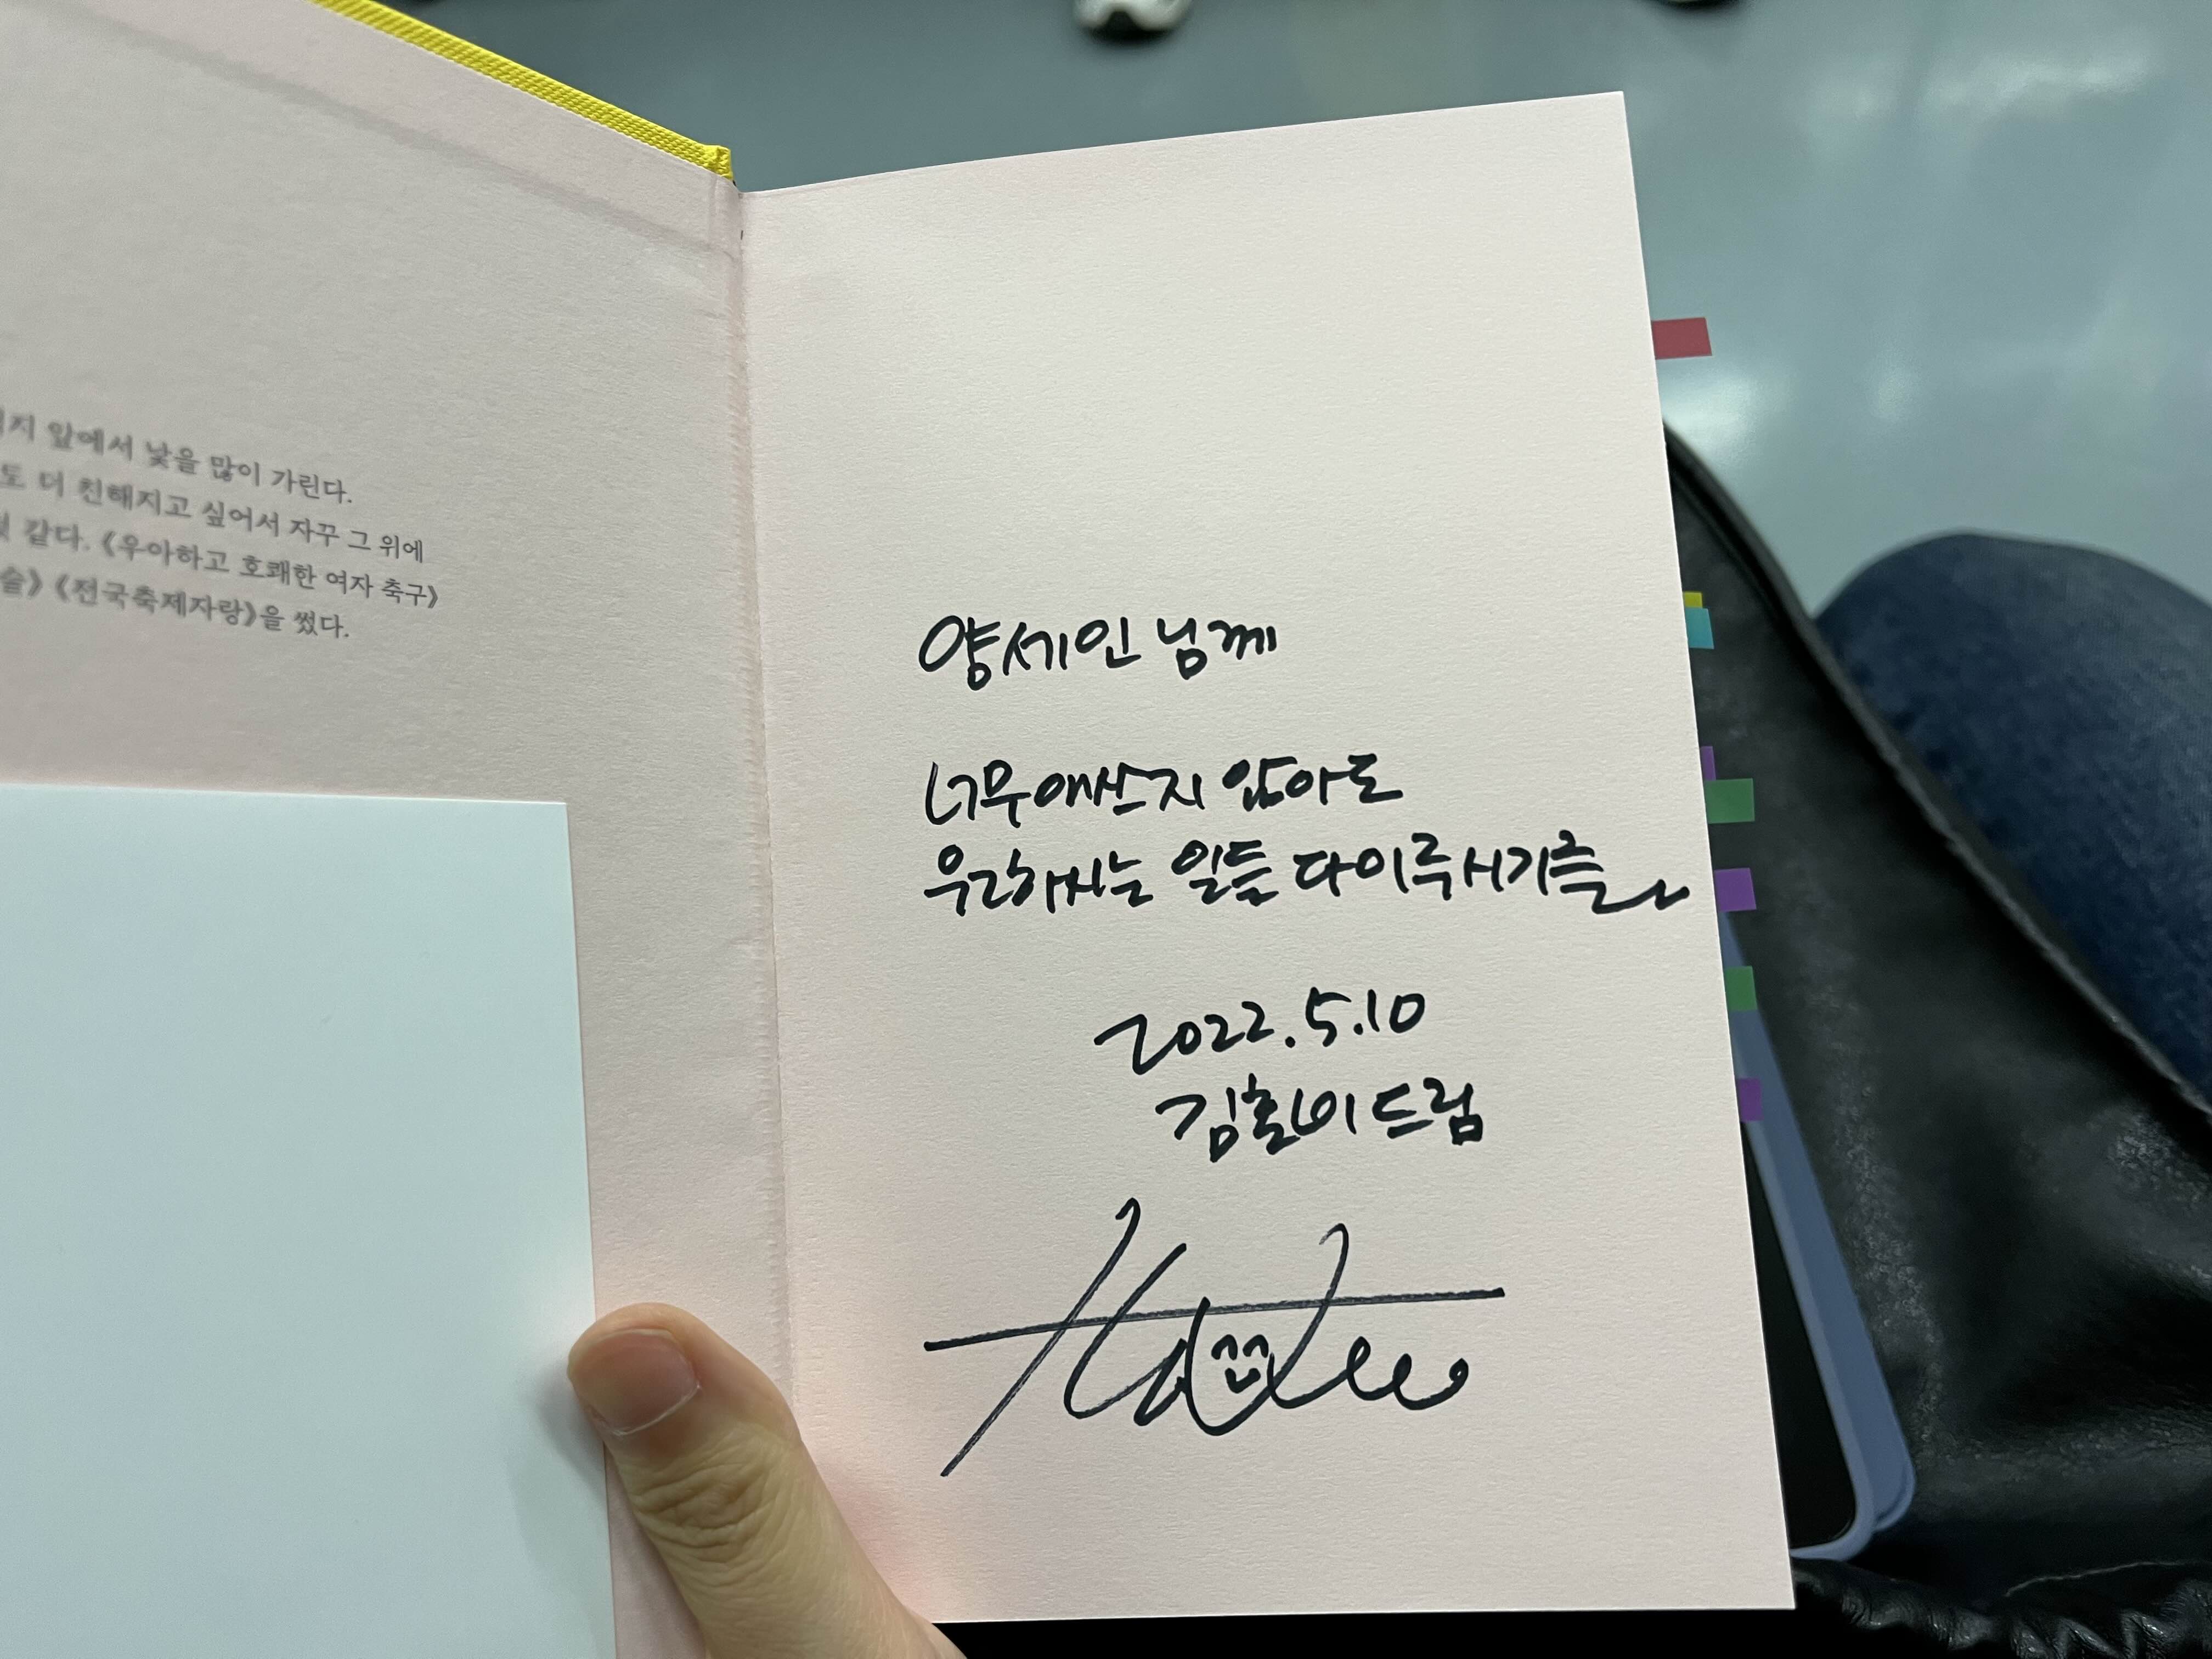 앞에서 낯을 많이 가린다.
도 더 친해지고 싶어서 자꾸 그 위에
같다. 《우아하고 호쾌한 여자 축구》
술》 《전국축제자랑》을 썼다.
양세인 님께
너무 애쓰지 않아도
우리하시는 일들 다 이루시기를
2022.5.10
김혼비 드림